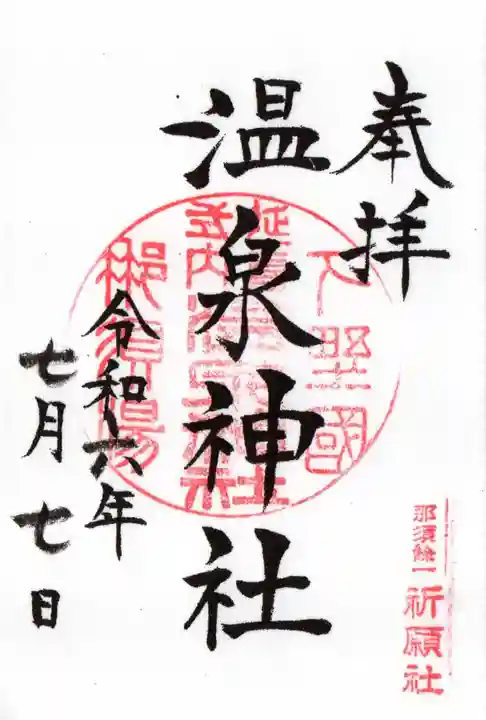 奉拝
下野國
温泉神社
延喜
式内温泉神社
那須湯
令和六年
七月七日
那須餘一
祈願社